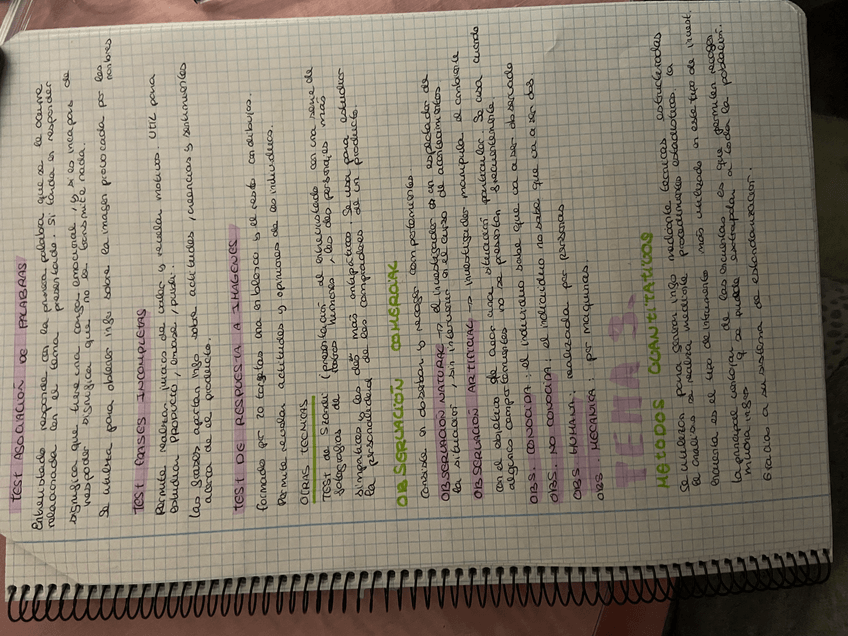 TEST ASOCIACIÓN DE PALABRAS
Entrevistado responde con la primera palabra que se le ocurre
relacionada con el tema presentado. Si tarda en responder
significa que tiene una carga emocional, y si es incapaz de
responder significa que no le transmite nada.
Se utiliza para obtener info sobre la imagen provocada por los nombres
TEST FRASES INCOMPLETAS
Permite realizar juicios de valor y revelar motivos. Útil para
estudiar producto, envase, publi.
Las frases aportan info sobre actitudes, creencias y sentimientos
acerca de el producto.
TEST DE RESPUESTA A IMÁGENES
formado por 20 tarjetas una en blanco y el resto con dibujos.
Permite revelar actitudes y opiniones de los individuos.
OTRAS TECNICAS
TEST de Szondi (presentación al entrevistado con una serie de
fotografías de varios hombres, los dos personajes más
simpáticos y los dos más antipáticos. Se usa para estudiar
la personalidad de los compradores de un producto.
OBSERVACIÓN COMERCIAL
Consiste en observar y recoger comportamientos
OBSERVACIÓN NATURAL → el investigador es un espectador de
la situación, sin intervenir en el curso de acontecimientos
OBSERVACIÓN ARTIFICIAL → investigador manipula el ambiente
con el objetivo de crear una situación particular. Se usa cuando
algunos comportamientos no se presentan frecuentemente.
OBS. CONOCIDA: el individuo sabe que va a ser observado
OBS. NO CONOCIDA: el individuo no sabe que va a ser obs
OBS HUMANA: realizada por personas
OBS. MECANICA: por maquinas
TEMA 3.
METODOS CUANTITATIVOS
Se utilizan para sacar info mediante tecnicas estructuradas
el analisis se realiza mediante procedimientos estadisticos. la
encuesta es el tipo de instrumento más utilizado en este tipo de invest.
la principal ventaja de las encuestas es que permiten recoger
mucha info y se puede extrapolar a toda la población.
Gracias a su sistema de estandarización.